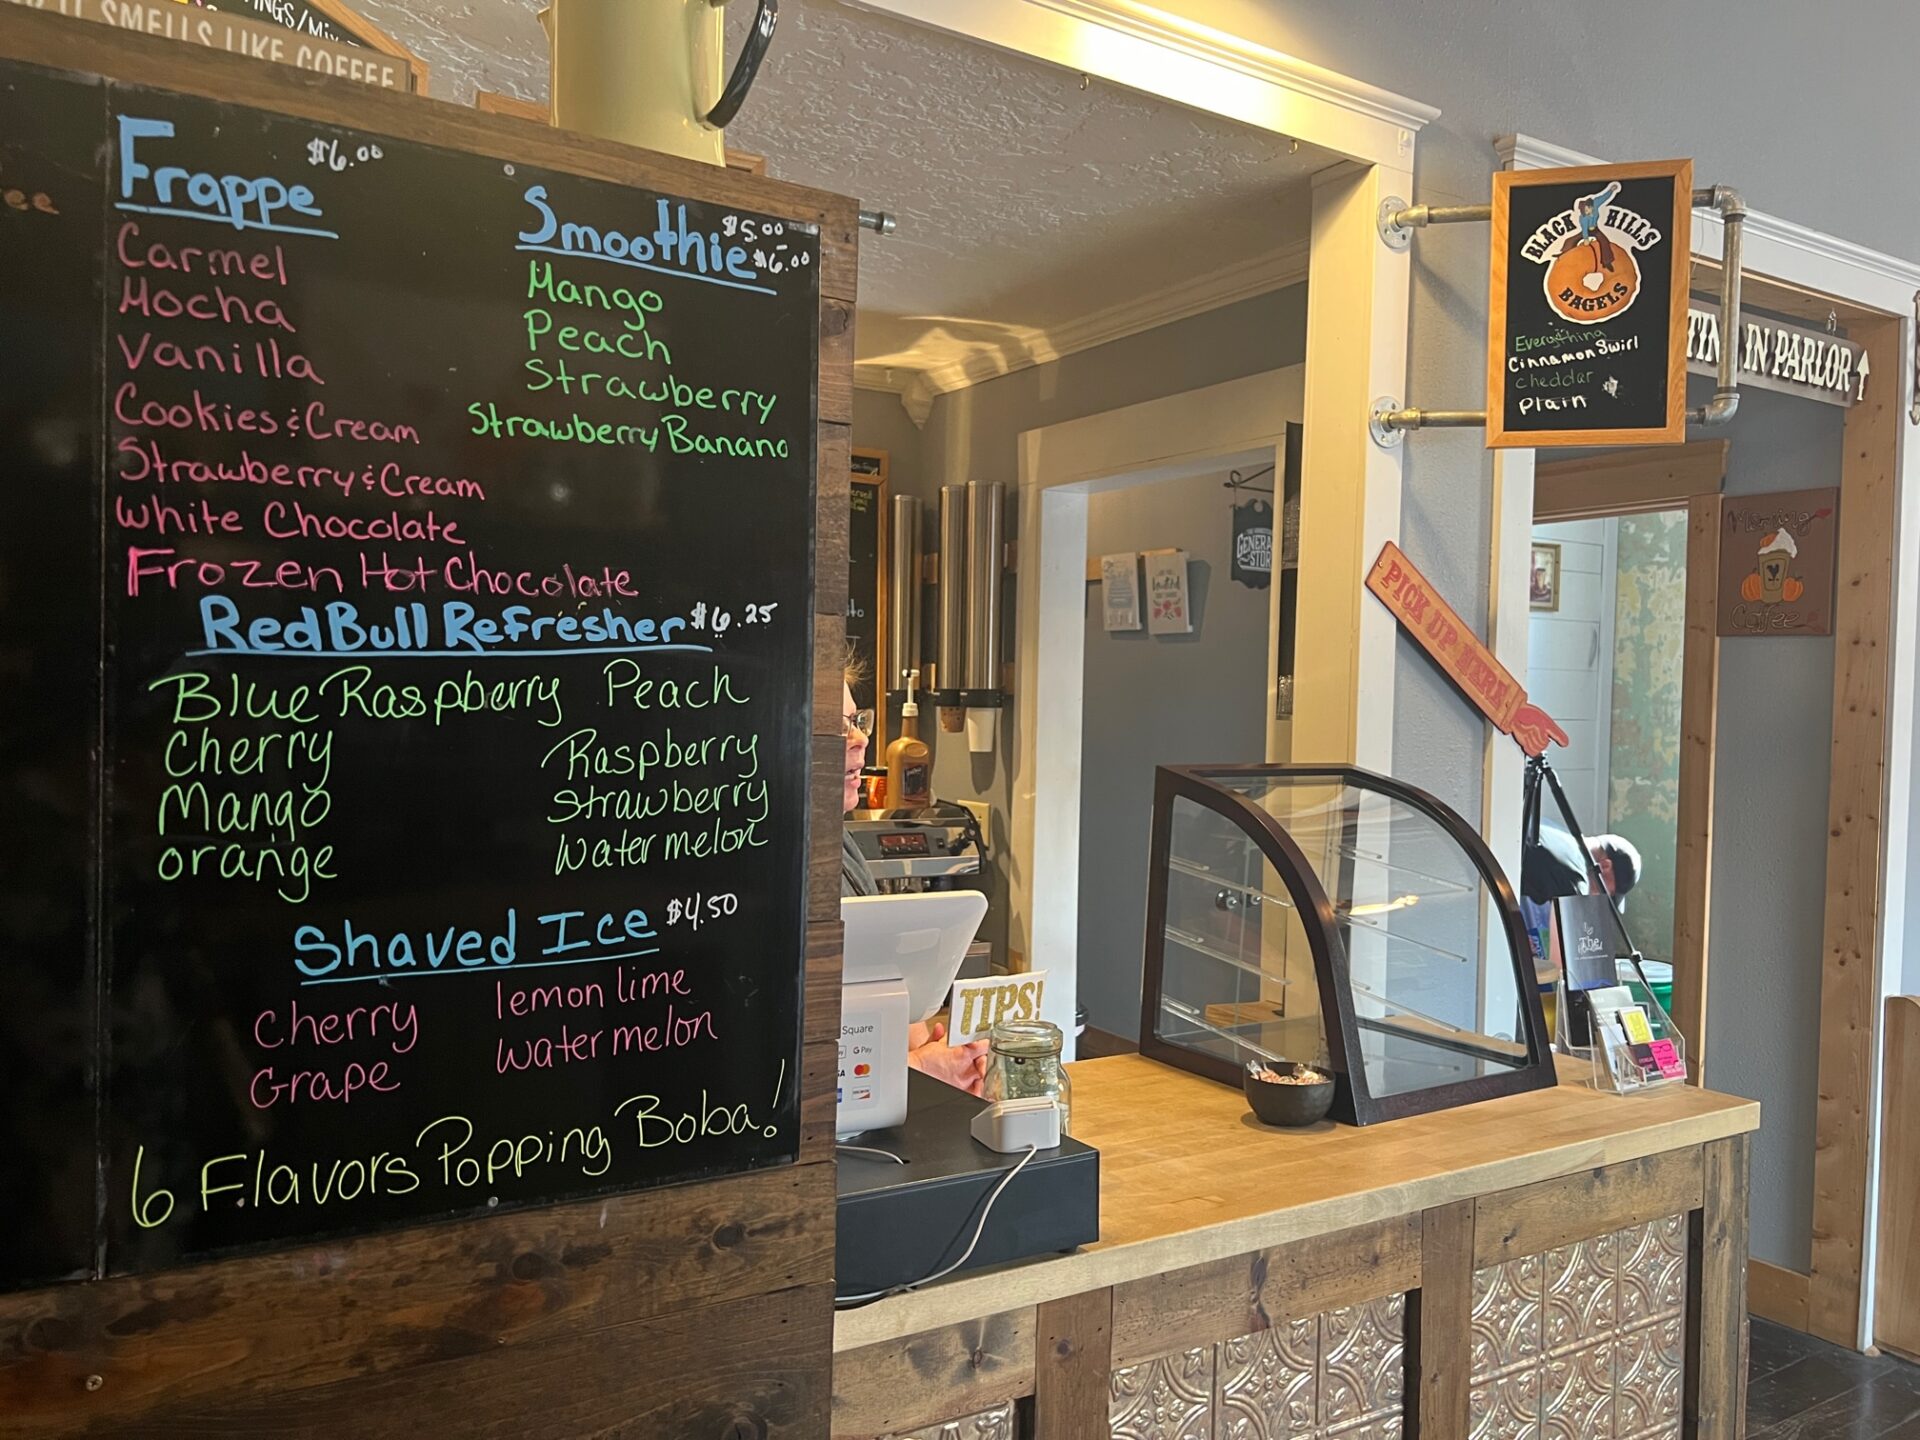 INGS/Mix
IT SMELLS LIKE COFFEE
Frappe $6.00
Carmel
Mocha
Vanilla
Cookies & Cream
Strawberry & Cream
White Chocolate
Frozen Hot Chocolate
Smoothie $5.00
$6.00
Mango
Peach
Strawberry
Strawberry Banana
Red Bull Refresher $6.25
Blue Raspberry Peach
Cherry Raspberry
Mango Strawberry
orange Watermelon
Shaved Ice $4.50
Cherry lemon lime
Grape watermelon
6 Flavors Popping Boba!
BLACK HILLS
BAGELS
Everything
Cinnamon Swirl
Cheddar
Plain
IN PARLOR
PICK UP HERE
Morning
Coffee
GENERAL
STORE
TIPS!
Square
G Pay
VISA
The